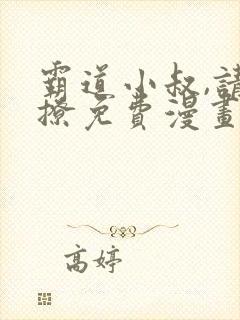 霸道小叔,請
撩免費漫畫
高婷